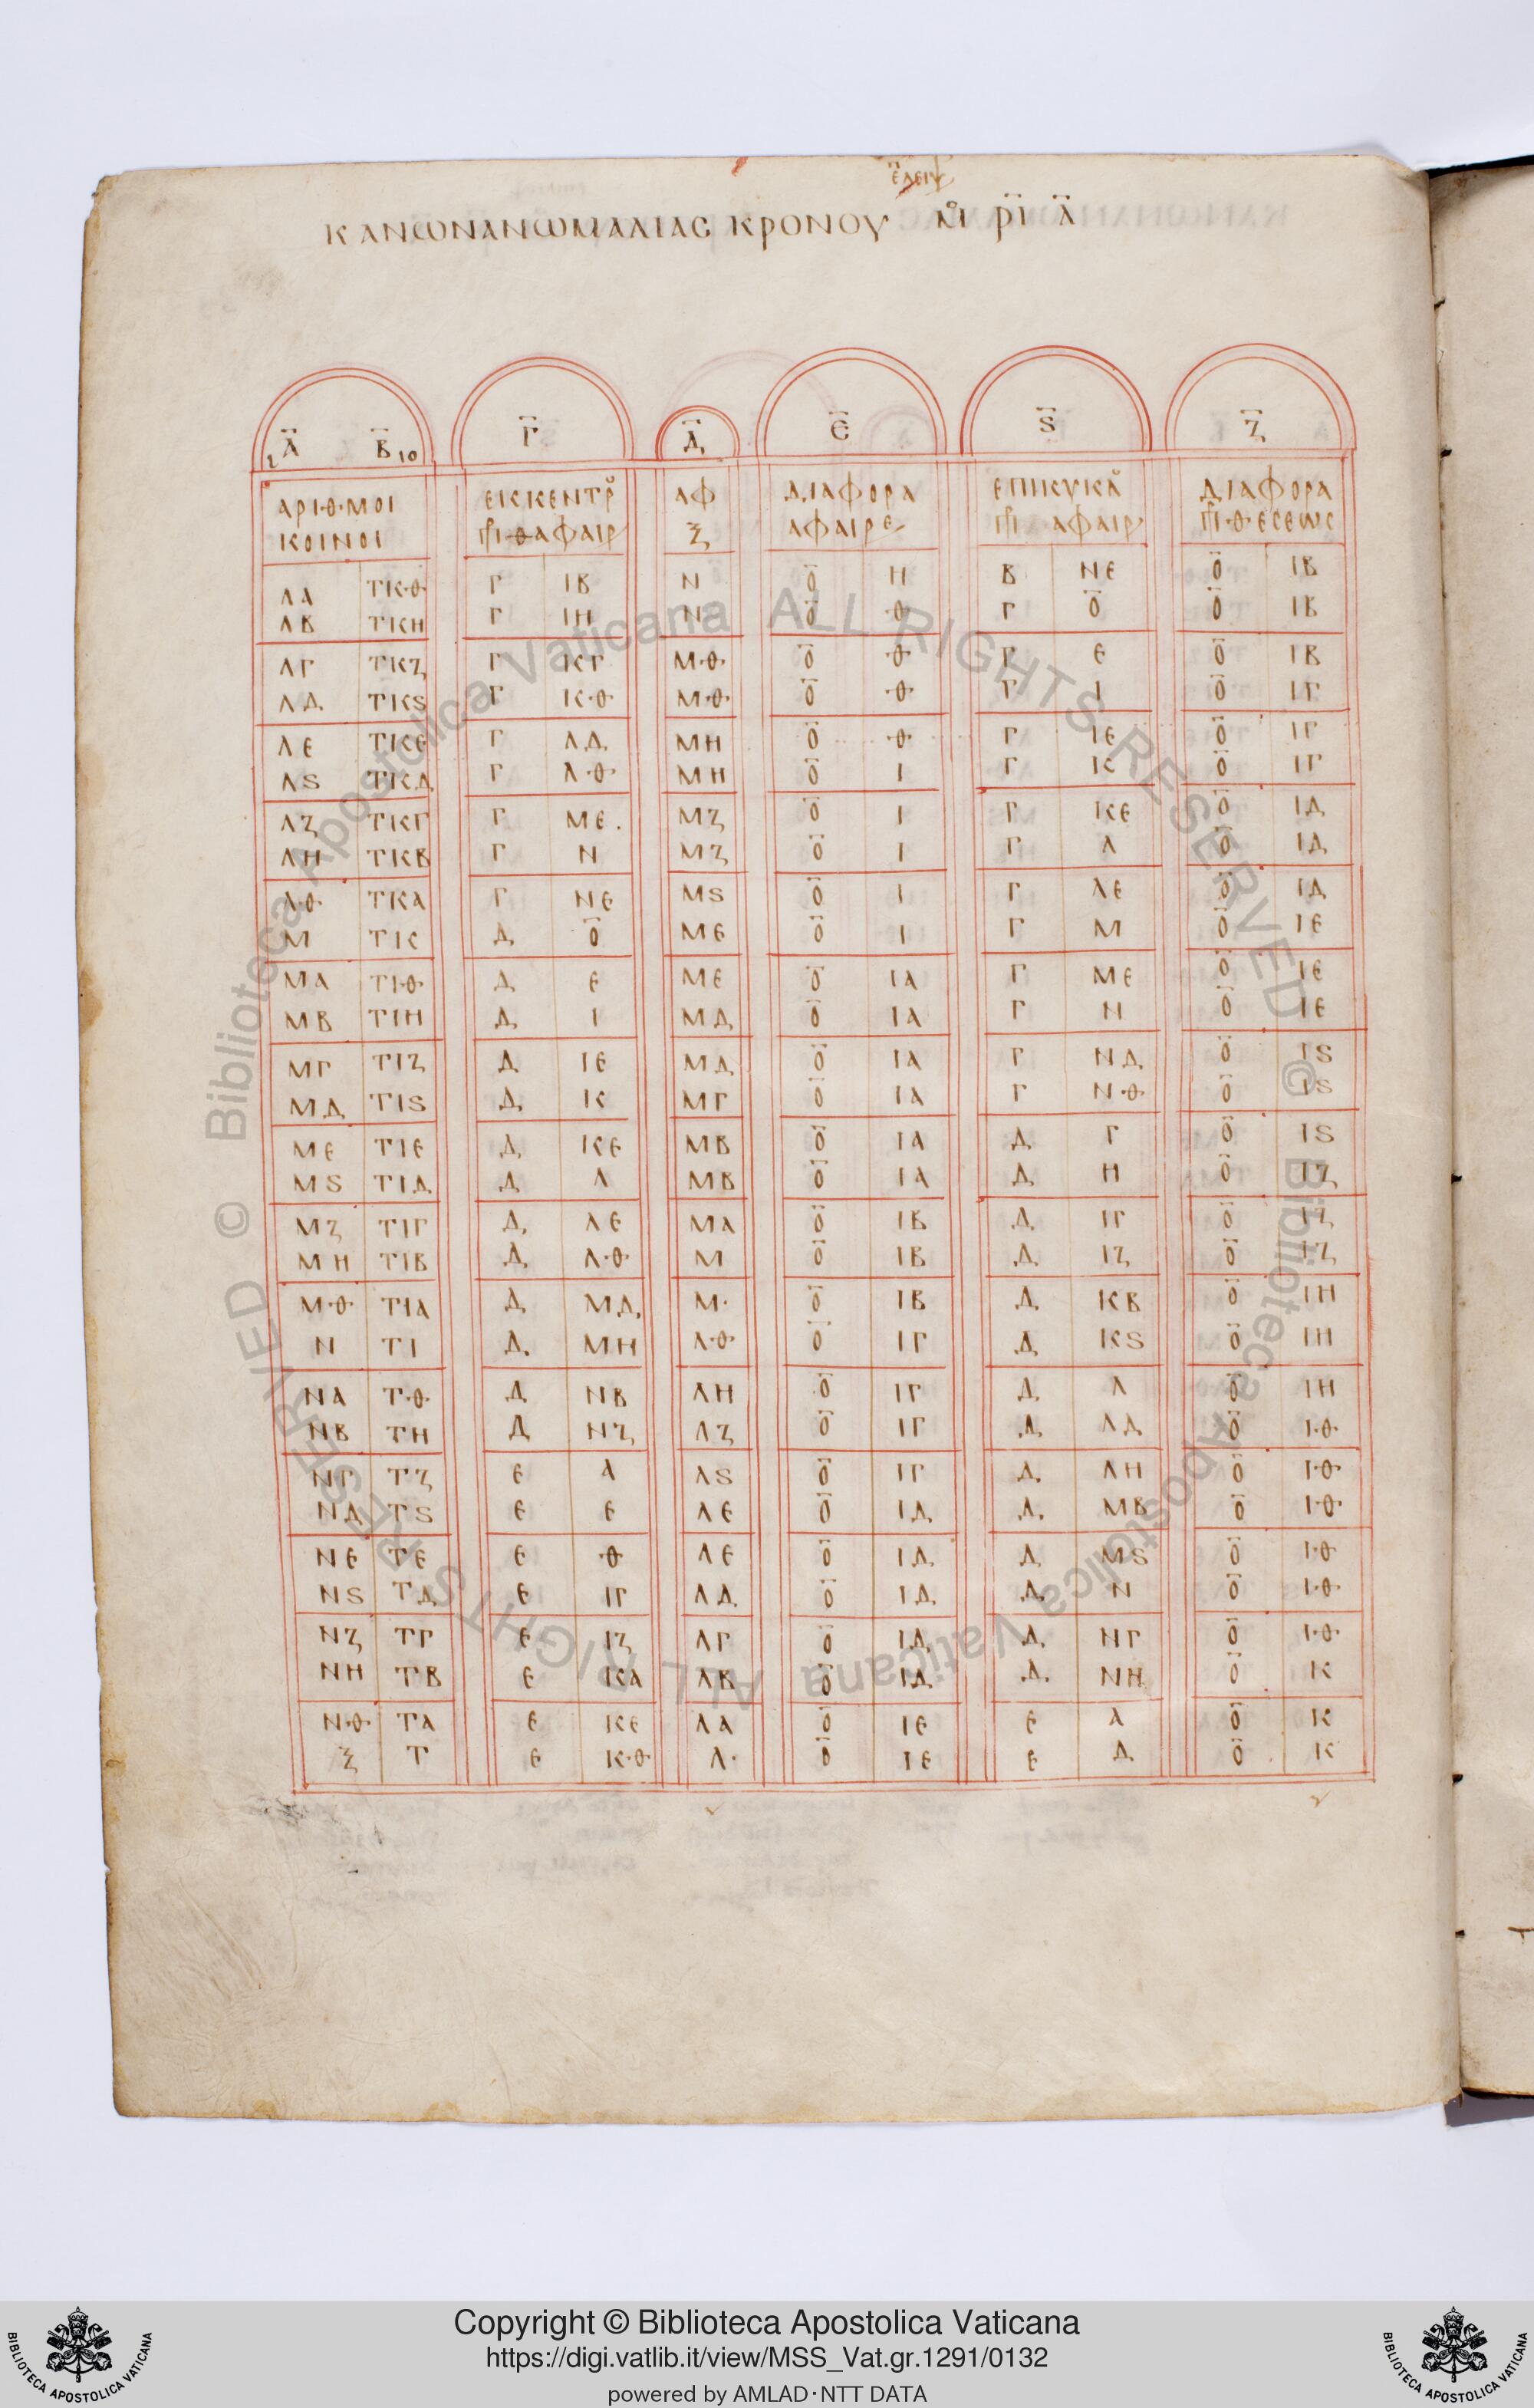 ΚΑΝΩΝ ΑΝΩΜΑΛΙΑС ΚΡΟΝΟΥ
Α Β Γ Δ Є Ϛ Ζ
ΑΡΙΘΜΟΙ ΕΙСΚΕΝΤΡ ΑΦ ΔΙΑΦΟΡΑ ΕΠΙΚΥΚΛ ΔΙΑΦΟΡΑ
ΚΟΙΝΟΙ ΑΦΑΙΡ Ξ ΑΦΑΙΡΕ ΑΦΑΙΡ ΘΕСΕωС
ΛΑ ΤΚΘ Γ ΙΒ Ν Ο Η Β ΝΕ Ο ΙΒ
ΛΒ ΤΚΗ Γ ΙΗ Ν Ο Θ Γ Ο Ο ΙΒ
ΛΓ ΤΚΖ Γ ΚΓ ΜΘ Ο Θ Γ Ε Ο ΙΒ
ΛΔ ΤΚϚ Γ ΚΘ ΜΘ Ο Θ Γ Ι Ο ΙΓ
ΛΕ ΤΚΕ Γ ΛΔ ΜΗ Ο Θ Γ ΙΕ Ο ΙΓ
ΛϚ ΤΚΔ Γ ΛΘ ΜΗ Ο Ι Γ Κ Ο ΙΓ
ΛΖ ΤΚΓ Γ ΜΕ ΜΖ Ο Ι Γ ΚΕ Ο ΙΔ
ΛΗ ΤΚΒ Γ Ν ΜΖ Ο Ι Γ Λ Ο ΙΔ
ΛΘ ΤΚΑ Γ ΝΕ ΜϚ Ο Ι Γ ΛΕ Ο ΙΔ
Μ ΤΚ Δ Ο ΜΕ Ο Ι Γ Μ Ο ΙΕ
ΜΑ ΤΙΘ Δ Ε ΜΕ Ο ΙΑ Γ ΜΕ Ο ΙΕ
ΜΒ ΤΙΗ Δ Ι ΜΔ Ο ΙΑ Γ Ν Ο ΙΕ
ΜΓ ΤΙΖ Δ ΙΕ ΜΔ Ο ΙΑ Γ ΝΔ Ο ΙϚ
ΜΔ ΤΙϚ Δ Κ ΜΓ Ο ΙΑ Γ ΝΘ Ο ΙϚ
ΜΕ ΤΙΕ Δ ΚΕ ΜΒ Ο ΙΑ Δ Γ Ο ΙϚ
ΜϚ ΤΙΔ Δ Λ ΜΒ Ο ΙΑ Δ Η Ο ΙΖ
ΜΖ ΤΙΓ Δ ΛΕ ΜΑ Ο ΙΒ Δ ΙΓ Ο ΙΖ
ΜΗ ΤΙΒ Δ ΛΘ Μ Ο ΙΒ Δ ΙΖ Ο ΙΖ
ΜΘ ΤΙΑ Δ ΜΔ Μ Ο ΙΒ Δ ΚΒ Ο ΙΗ
Ν ΤΙ Δ ΜΗ ΛΘ Ο ΙΓ Δ ΚϚ Ο ΙΗ
ΝΑ ΤΘ Δ ΝΒ ΛΗ Ο ΙΓ Δ Λ Ο ΙΗ
ΝΒ ΤΗ Δ ΝΖ ΛΖ Ο ΙΓ Δ ΛΔ Ο ΙΘ
ΝΓ ΤΖ Ε Α ΛϚ Ο ΙΓ Δ ΛΗ Ο ΙΘ
ΝΔ ΤϚ Ε Ε ΛΕ Ο ΙΔ Δ ΜΒ Ο ΙΘ
ΝΕ ΤΕ Ε Θ ΛΕ Ο ΙΔ Δ ΜϚ Ο ΙΘ
ΝϚ ΤΔ Ε ΙΓ ΛΔ Ο ΙΔ Δ Ν Ο ΙΘ
ΝΖ ΤΓ Ε ΙΖ ΛΓ Ο ΙΔ Δ ΝΓ Ο ΙΘ
ΝΗ ΤΒ Ε ΚΑ ΛΒ Ο ΙΔ Δ ΝΗ Ο Κ
ΝΘ ΤΑ Ε ΚΕ ΛΑ Ο ΙΕ Ε Α Ο Κ
Ξ Τ Ε ΚΘ Λ Ο ΙΕ Ε Δ Ο Κ
© Biblioteca Apostolica Vaticana ALL RIGHTS RESERVED © Biblioteca Apostolica Vaticana ALL RIGHTS RESERVED
Copyright © Biblioteca Apostolica Vaticana
https://digi.vatlib.it/view/MSS_Vat.gr.1291/0132
powered by AMLAD·NTT DATA
BIBLIOTECA APOSTOLICA VATICANA
BIBLIOTECA APOSTOLICA VATICANA